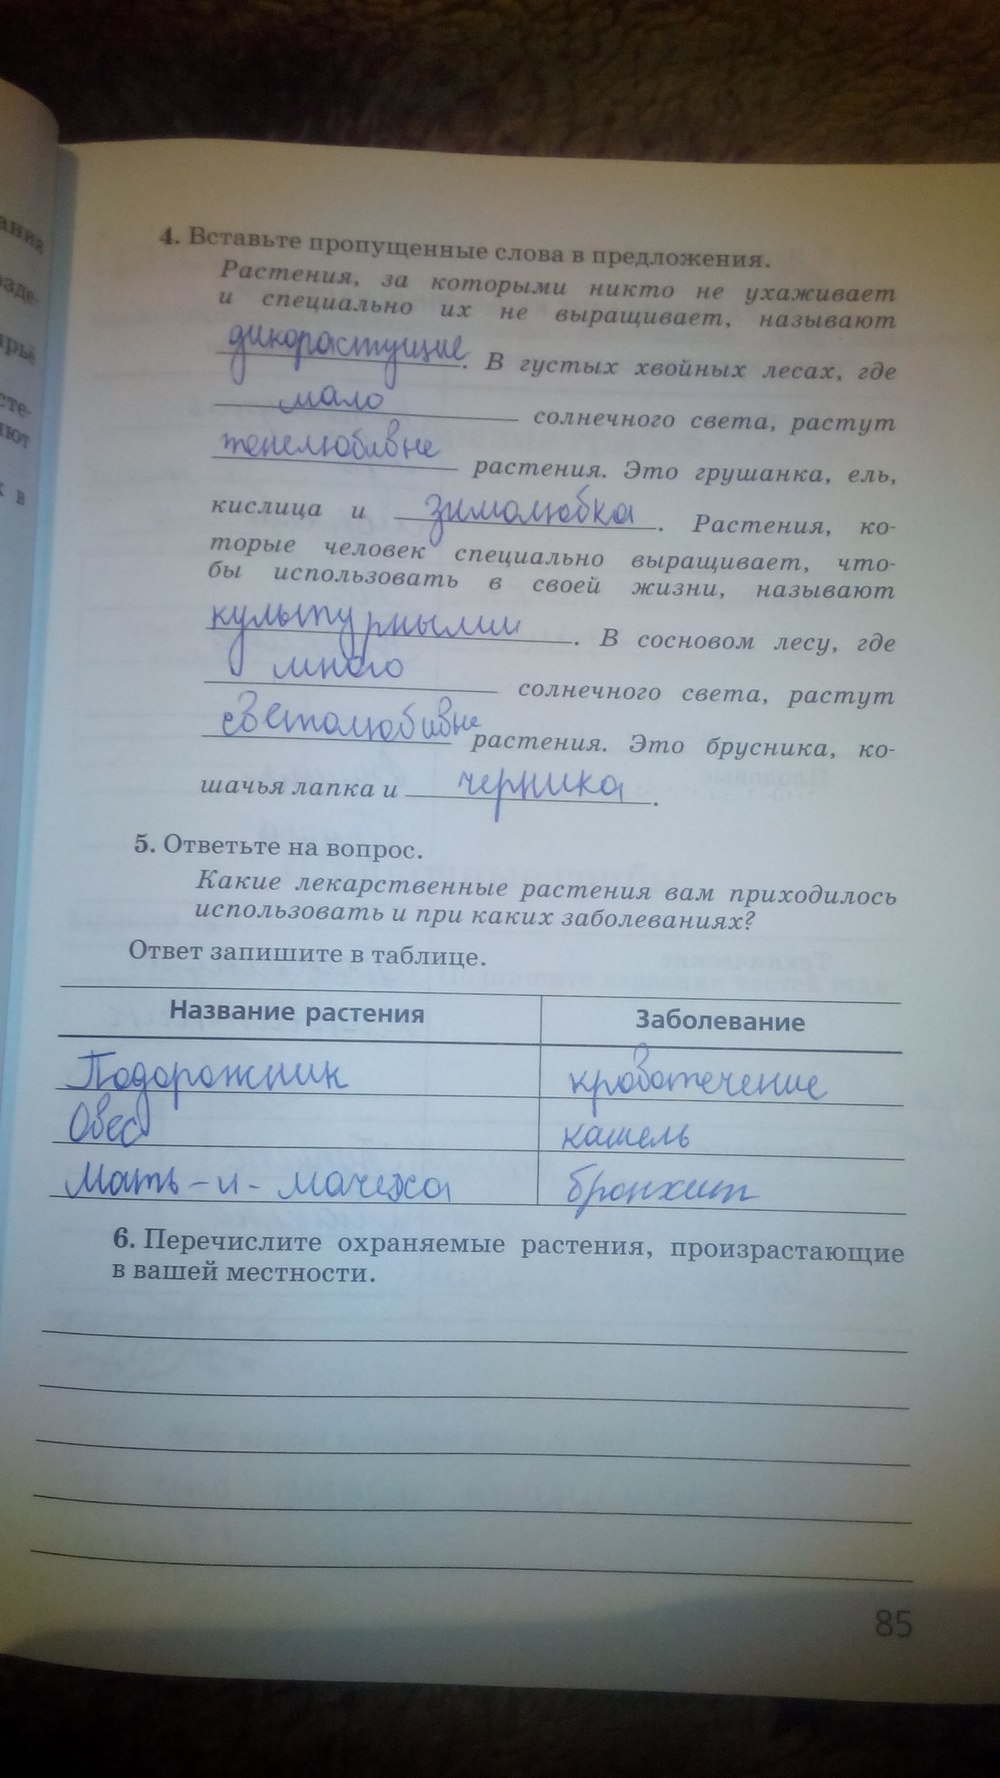 ания
4. Вставьте пропущенные слова в предложения.
Растения, за которыми никто не ухаживает
и специально их не выращивает, называют
дикорастущие. В густых хвойных лесах, где
мало солнечного света, растут
тенелюбивне растения. Это грушанка, ель,
кислица и зимолюбка. Растения, ко-
торые человек специально выращивает, что-
бы использовать в своей жизни, называют
культурными. В сосновом лесу, где
много солнечного света, растут
светолюбивне растения. Это брусника, ко-
шачья лапка и черника.
5. Ответьте на вопрос.
Какие лекарственные растения вам приходилось
использовать и при каких заболеваниях?
Ответ запишите в таблице.
Название растения Заболевание
Подорожник кровотечение
Овес кашель
Мать-и-мачеха бронхит
6. Перечислите охраняемые растения, произрастающие
в вашей местности.
85